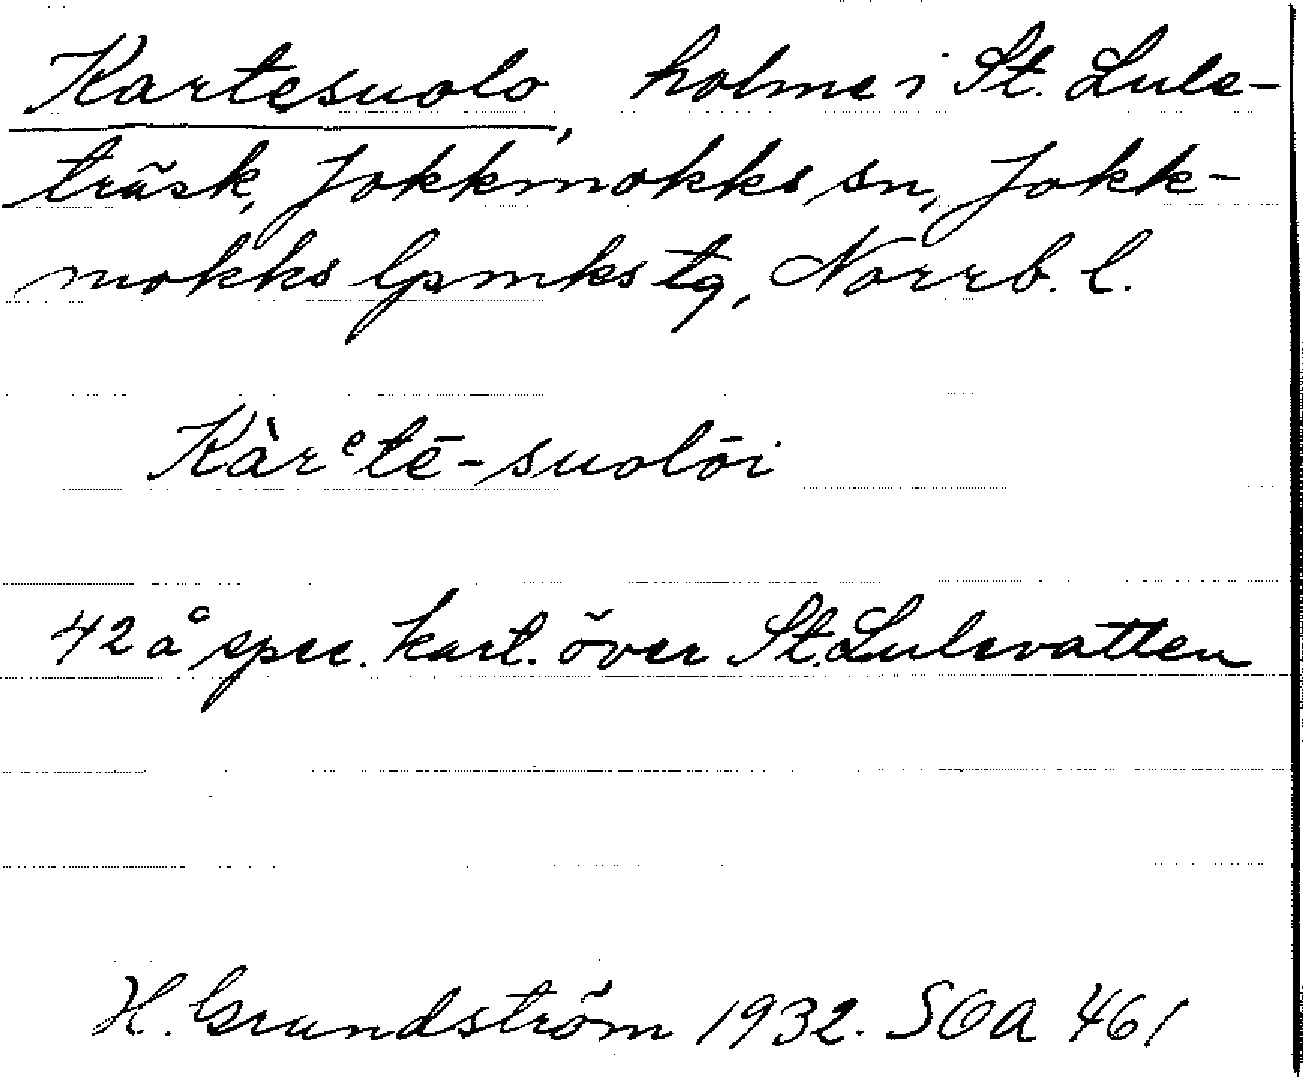 Kartesuolo, holme i St. Lule-
träsk, Jokkmokks sn, Jokk-
mokks lpmks tg, Norrb. l.
Kàrᵉtē-suolōi
42 å spec. kart. över St. Lulevatten
H. Grundström 1932. SOA 461